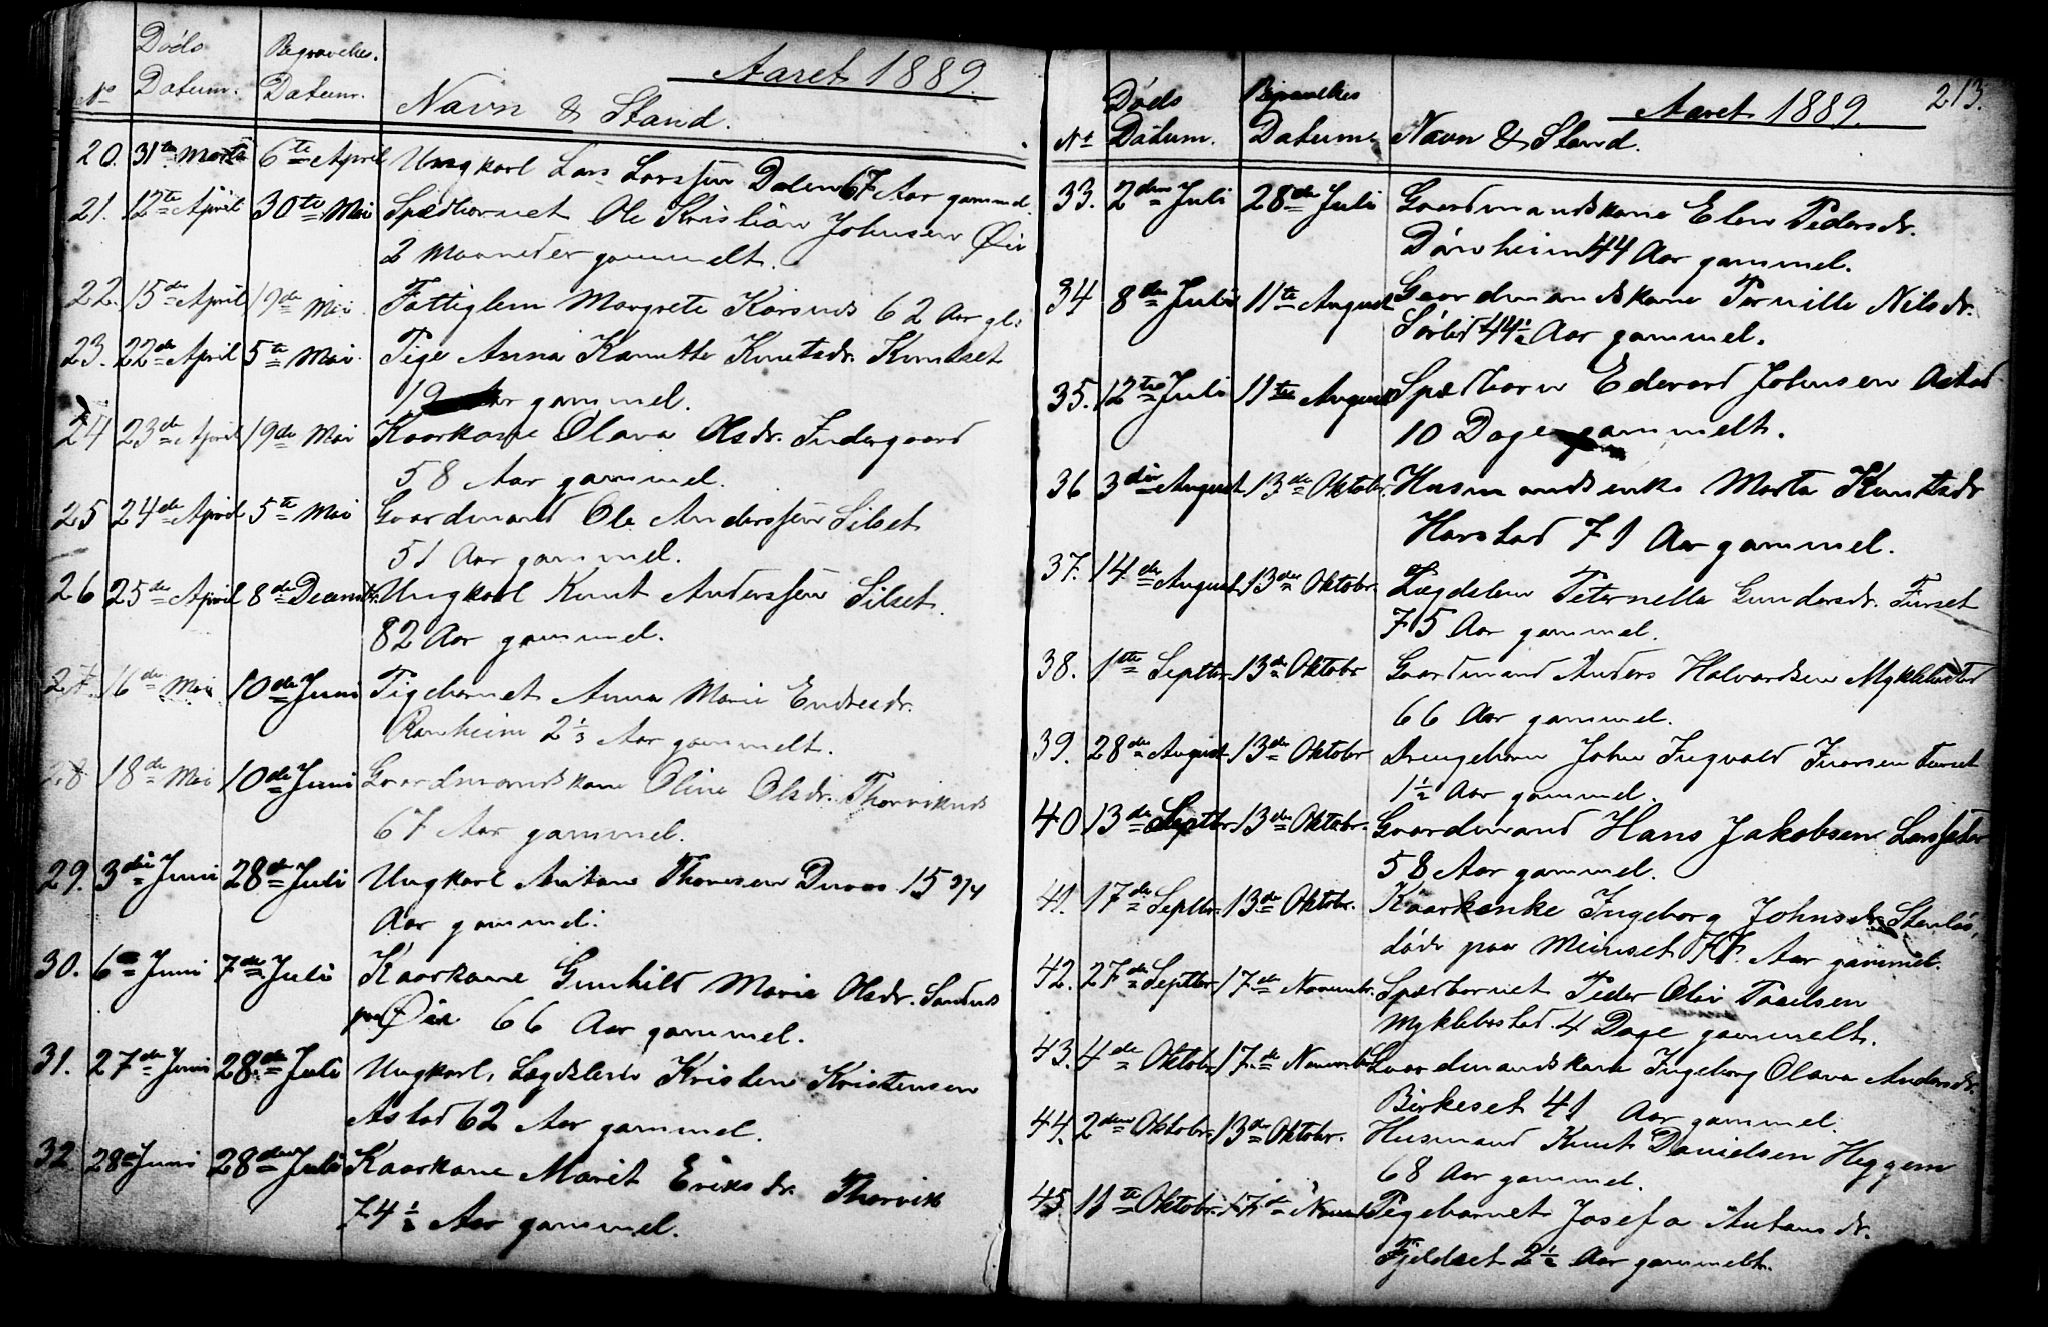 Aaret 1889.
No Døds Datum. Begravelses Datum. Navn & Stand.
20. 31te Marts 6te April Ungkarl Lars Larssen Dalen 67 Aar gammel.
21. 12te April 30te Mai Spædbarnet Ole Kristian Johnsen Øie
2 Maaneder gammelt.
22. 15de April 19de Mai Fattiglem Margrete Korsnes 62 Aar gl.
23. 22de April 5te Mai Pige Anna Knutsdr.
19 Aar gammel.
24 23de April 19de Mai Kaarkone Olava Olsdr. Indergaard
58 Aar gammel.
25 24de April 5te Mai Gaardmand Ole Anderssen Silset
51 Aar gammel.
26 25de April 8de Decembr. Ungkarl Knut Anderssen Silset.
82 Aar gammel.
27. 16de Mai 10de Juni Pigebarnet Anna Marie Endresdr.
Ranheim 2 1/3 Aar gammelt.
28 18de Mai 10de Juni Gaardmandskone Oline Olsdr. Thorviknes
67 Aar gammel.
29. 3die Juni 28de Juli Ungkarl Anton Thoresen 15 3/4
Aar gammel.
30. 6te Juni 7de Juli Kaarkone Gunhild Marie Olsdr. Sandnes
paa Øie 66 Aar gammel.
31. 27de Juni 28de Juli Ungkarl, Lægdslem Kristen Kristensen
Astad 62 Aar gammel.
32. 28de Juni 28de Juli Kaarkone Marit Eriksdr. Thorvik
74 1/2 Aar gammel.
213.
Aaret 1889.
No Døds Datum. Begravelses Datum. Navn & Stand.
33. 2den Juli 28de Juli Gaardmandskone Elen Pedersdr.
44 Aar gammel.
34 8de Juli 11te August Gaardmandskone Pernille Nilsdr.
Sørlid 44 1/2 Aar gammel.
35. 12te Juli 11te August Spædbarn Edvard Johnsen Astad
10 Dage gammelt.
36 3die August 13de Oktobr. Husmandsenke Marta Knutsdr
Harstad 71 Aar gammel.
37. 14de August 13de Oktobr. Lægdslem Peternella Gundersdr. Furset
75 Aar gammel.
38. 1ste Septbr. 13de Oktobr Gaardmand Anders Halvardsen Myklebostad
66 Aar gammel.
39. 28de August 13de Oktobr Drengebarn John Ingvald Iversen Furset
1 1/2 Aar gammel.
40 13de Septbr. 13de Oktobr. Gaardmand Hans Jakobsen
58 Aar gammel.
41. 17de Septbr. 13de Oktobr. Kaarkenke Ingeborg Johnsdr. Stenløs,
døde paa Meisset Aar gammel.
42. 27de Septbr. 17de Novembr. Spædbarnet Peder Oliv Paulsen
Myklebostad. 4 Dage gammelt.
43. 4de Oktobr. 17de Novembr Gaardmandskone Ingeborg Olava Andersdr.
Birkeset 41 Aar gammel.
44. 2den Oktobr. 13de Oktobr. Husmand Knut Danielsen Heggem
68 Aar gammel.
45 11te Oktobr. 17de Novembr Pigebarnet Josefa Antonsdr.
Fjeldset 2 1/2 Aar gammelt.